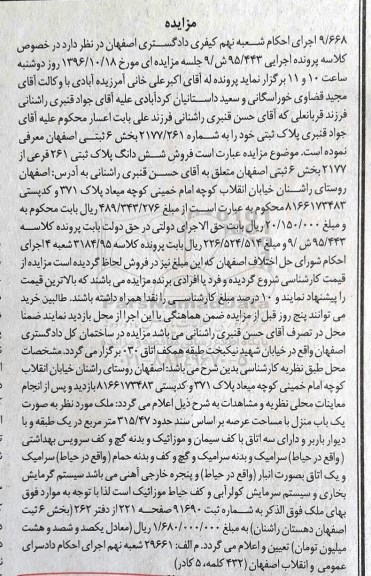 مزایده
۹/۶۶۸ اجرای احکام شعبه نهم کیفری دادگستری اصفهان در نظر دارد در خصوص
کلاسه پرونده اجرایی ۹۵/۴۴۳ ش/۹ جلسه مزایده ای مورخ ۱۳۹۶/۱۰/۱۸ روز دوشنبه
ساعت ۱۰ و ۱۱ برگزار نماید پرونده له آقای اکبر علی خانی آمرزیده آبادی با وکالت آقای
مجید قضاوی خوراسگانی و سعید داستانیان کردآبادی علیه آقای جواد قنبری راشنانی
فرزند قربانعلی که آقای حسن قنبری راشنانی فرزند علی بابت اعسار محکوم علیه آقای
جواد قنبری پلاک ثبتی خود را به شماره ۲۱۷۷/۲۶۱ بخش ۶ ثبتی اصفهان معرفی
نموده است. موضوع مزایده عبارت است فروش شش دانگ پلاک ثبتی ۲۶۱ فرعی از
۲۱۷۷ بخش ۶ ثبتی اصفهان متعلق به آقای حسن قنبری راشنانی به آدرس: اصفهان
روستای راشنان خیابان انقلاب کوچه امام خمینی کوچه میعاد پلاک ۳۷۱ و کدپستی
۸۱۶۶۱۷۳۴۸۳ محکوم به عبارت است از مبلغ ۴۸۹/۳۴۳/۲۷۶ ریال بابت محکوم به
و مبلغ ۲۰/۱۵۰/۰۰۰ ریال بابت حق الاجرای دولتی در حق دولت بابت پرونده کلاسه
۹۵/۴۴۳ ش/۹ و مبلغ ۲۲۶/۵۲۴/۵۱۴ ریال بابت پرونده کلاسه ۳۱۸۴/۹۵ شعبه ۴ اجرای
احکام شورای حل اختلاف اصفهان که این مبلغ نیز در فروش لحاظ گردیده است مزایده از
قیمت کارشناسی شروع گردیده و فرد یا افرادی برنده مزایده می باشند که بالاترین قیمت
را پیشنهاد نمایند و ۱۰ درصد مبلغ کارشناسی را نقدا همراه داشته باشند. طالبین خرید
می توانند پنج روز قبل از مزایده ضمن هماهنگی با این اجرا از محل بازدید نمایند ضمنا
محل در تصرف آقای حسن قنبری راشنانی می باشد مزایده در ساختمان کل دادگستری
اصفهان واقع در خیابان شهید نیکبخت طبقه همکف اتاق ۰۳۰ برگزار می گردد. مشخصات
محل طبق نظریه کارشناسی بدین شرح می باشد: اصفهان روستای راشنان خیابان انقلاب
کوچه امام خمینی کوچه میعاد پلاک ۳۷۱ و کدپستی ۸۱۶۶۱۷۳۴۸۳ بازدید و پس از انجام
معاینات محلی نظریه و مشاهدات به شرح ذیل اعلام می گردد: ملک مورد نظر به صورت
یک باب منزل با مساحت عرصه بر اساس سند حدود ۳۱۵/۴۷ متر مربع در یک طبقه و با
دیوار باربر و دارای سه اتاق با کف سیمان و موزائیک و بدنه گچ و کف سرویس بهداشتی
(واقع در حیاط) سرامیک و بدنه سرامیک و گچ و کف و بدنه حمام (واقع در حیاط) سرامیک
و یک اتاق بصورت انبار (واقع در حیاط) و پنجره خارجی آهنی می باشد سیستم گرمایش
بخاری و سیستم سرمایش کولرآبی و کف حیاط موزائیک است لذا با توجه به موارد فوق
بهای ملک فوق الذکر به شماره ثبت ۹۱۶۹۰ صفحه ۲۲۱ از دفتر ۲۶۲ (بخش ۶ ثبت
اصفهان دهستان راشنان) به مبلغ ۱/۶۸۰/۰۰۰/۰۰۰ ریال (معادل یکصد و شصت و هشت
میلیون تومان) تعیین و اعلام می گردد. م الف: ۲۹۶۶۱ شعبه نهم اجرای احکام دادسرای
عمومی و انقلاب اصفهان (۴۳۲ کلمه، ۵ کادر)